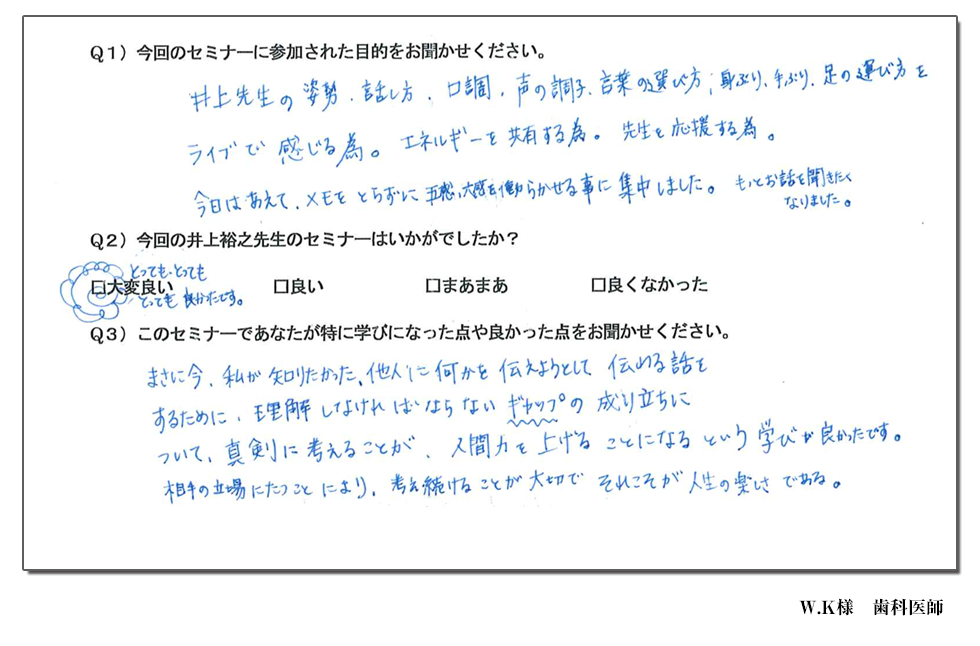 Q1）今回のセミナーに参加された目的をお聞かせください。
井上先生の姿勢、話し方、口調、声の調子、言葉の選び方；身ぶり、手ぶり、足の運び方を
ライブで感じる為。エネルギーを共有する為。先生を応援する為。
今日はあえて、メモをとらずに五感、六感を働らかせる事に集中しました。もっとお話を聞きたく
なりました。
Q2）今回の井上裕之先生のセミナーはいかがでしたか？
とっても、とっても
□大変良い　□良い　□まあまあ　□良くなかった
とっても良かったです。
Q3）このセミナーであなたが特に学びになった点や良かった点をお聞かせください。
まさに今、私が知りたかった、他人に何かを伝えようとして伝わる話を
するために、理解しなければならないギャップの成り立ちに
ついて、真剣に考えることが、人間力を上げることになるという学びが良かったです。
相手の立場にたつことにより、考え続けることが大切でそれこそが人生の楽しさである。
W.K様　歯科医師